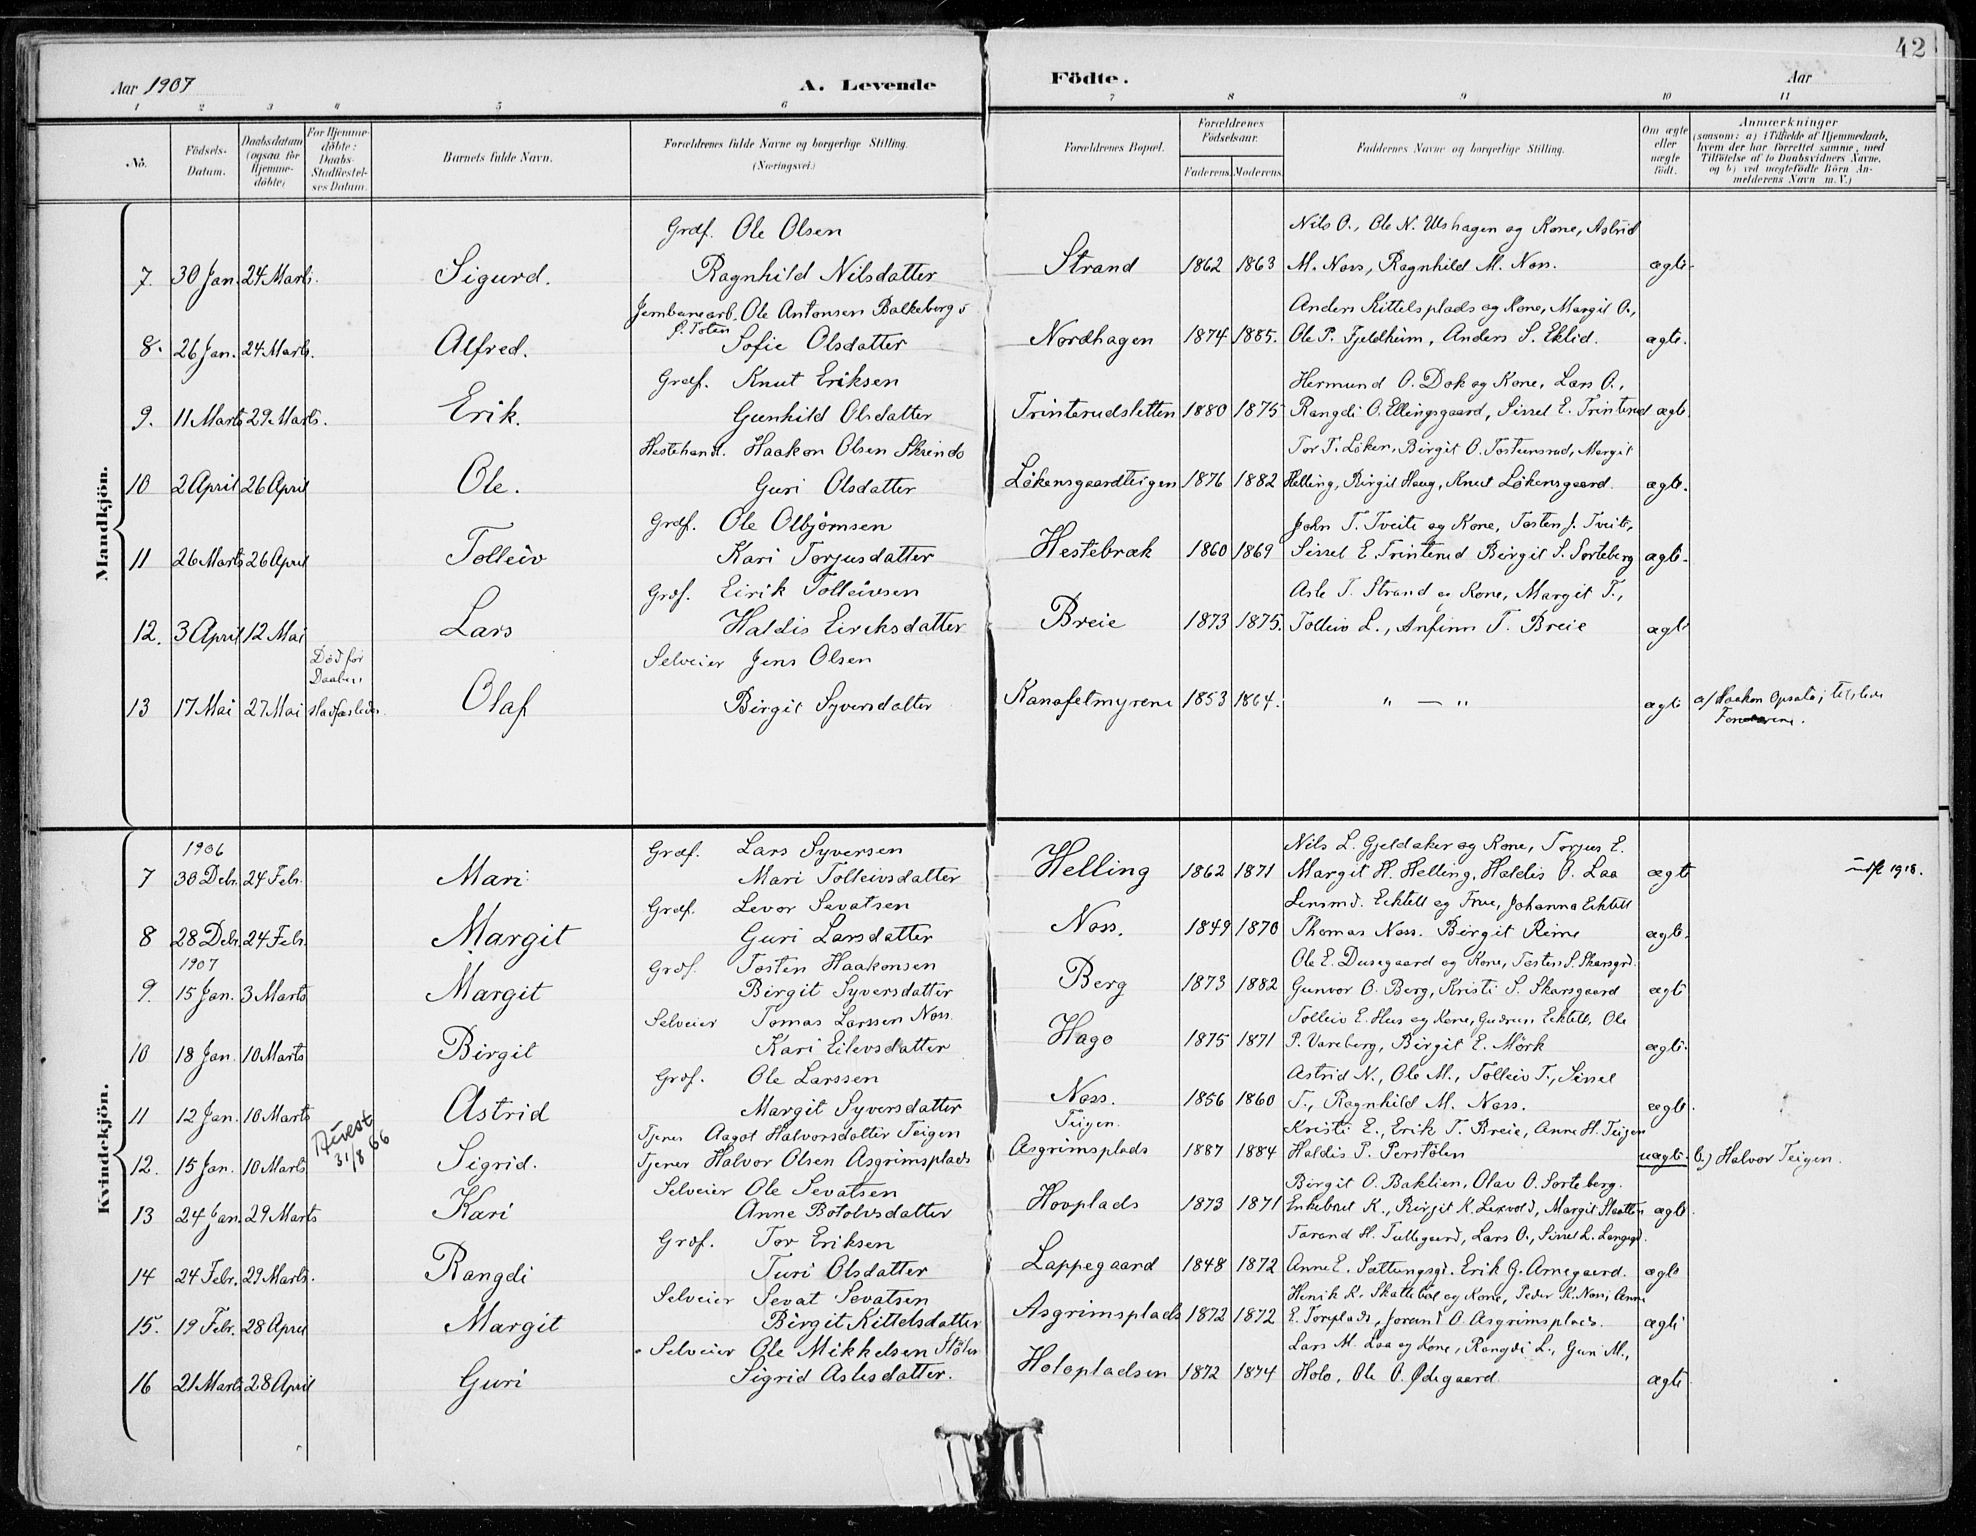 42
Aar 1907 A. Levende Födte. Aar
1 2 3 4 5 6 7 8 9 10 11
No. Födsels-Datum. Daabsdatum (ogsaa for Hjemmedöbte) For Hjemmedöbte: Daabs-Stadfæstelses Datum. Barnets fulde Navn. Forældrenes fulde Navne og borgerlige Stilling. (Næringsvei.) Forældrenes Bopæl. Forældrenes Födselsaar. Faderens. Moderens. Faddernes Navne og borgerlige Stilling. Om ægte eller uægte födt. Anmærkninger (saasom: a) i Tilfælde af Hjemmedaab, hvem der har forrettet samme, med Tilföielse af to Daabsvidners Navne, og b) ved uægtefödte Börn Anmelderens Navn m. V.)
Mandkjön.
Grdf. Ole Olsen Nils O., Ole N. Ulshagen og Kone, Astrid
7. 30 Jan. 24 Marts. Sigurd. Ragnhild Nilsdatter Strand 1862 1863 M. Noss, Ragnhild M. Noss. ægte.
Jernbanearb. Ole Antonsen Balkeberg Anders Kittelsplads og Kone, Margit O.,
8. 26 Jan. 24 Marts. Alfred. Ø. Toten Sofie Olsdatter Nordhagen 1874 1885. Ole P. Fjeldheim, Anders S. Eklid. ægte.
Grdf. Knut Eriksen Hermund O. Dok og Kone, Lars O.,
9. 11 Marts 29 Marts. Erik. Gunhild Olsdatter Trinterudsletten 1880 1875 Rangdi O. Ellingsgaard, Sissel E. Trinterud ægte.
Hestehand. Haakon Olsen Skrindo Tor T. Löken, Birgit O. Tosteinsrud, Margit
10 2 April 26 April Ole. Guri Olsdatter Lökensgaardteigen 1876 1882 Helling, Birgit Haug, Knut Lökensgaard. ægte.
Grdf. Ole Olbjörnsen John T. Tveito og Kone, Tosten J. Tveito,
11 26 Marts 26 April Tolleiv Kari Torjusdatter Hestebræk 1860 1869 Sissel E. Trinterud Birgit S. Sorteberg ægte.
Grdf. Eirik Tolleivsen Asle T. Strand og Kone, Margit T.,
12. 3 April 12 Mai Lars Haldis Eiriksdatter Breie 1873 1875. Tolleiv L., Anfinn T. Breie ægte
Död för Daabens Selveier Jens Olsen
13 17 Mai 27 Mai stadfæstedes. Olaf Birgit Syversdatter Kanafetmyrene 1853 1864. " — " ægte a) Haakon Opsata; tilstede
Forældrene.
Kvindekjön.
1906 Grdf. Lars Syversen Nils L. Gjeldaker og Kone, Torjus E.
7 30 Debr. 24 Febr. Mari Mari Tolleivsdatter Helling 1862 1871 Margit H. Helling, Haldis O. Laa ægte 1918.
Grdf. Levor Sevatsen Lensmd. Ecktell og Frue, Johanna Ecktell
8 28 Debr. 24 Febr. Margit Guri Larsdatter Noss. 1849 1870 Thomas Noss. Birgit Rime ægte.
1907 Grdf. Tosten Haakonsen Ole E. Dusegaard og Kone, Tosten S. Skarsgrd.
9. 15 Jan. 3 Marts Margit Birgit Syversdatter Berg 1873 1882 Gunvor O. Berg, Kristi S. Skarsgaard ægte
Selveier Tomas Larssen Noss. Tolleiv E. Hus og Kone, Gudrun Ecktell, Ole
10 18 Jan. 10 Marts Birgit Kari Eilevsdatter Hago 1875 1871 P. Vareberg, Birgit E. Mörk ægte.
Grdf. Ole Larssen Astrid N., Ole M., Tolleiv T., Sissel
11 12 Jan. 10 Marts Astrid Margit Syversdatter Noss. 1856 1860 T., Ragnhild M. Noss. ægte.
Attest 31/8 66 Tjener Aagot Halvorsdatter Teigen Teigen. Kristi E., Erik T. Breie, Anne H. Teigen
12. 15 Jan. 10 Marts Sigrid. Tjener Halvor Olsen Asgrimsplads Asgrimsplads 1887 1884 Haldis P. Perstölen uægte. b.) Halvor Teigen.
Selveier Ole Sevatsen Birgit O. Baklien, Olav O. Sorteberg.
13 24 Jan. 29 Marts Kari Anne Botolvsdatter Hovplads 1873 1871 Enkebret K., Birgit K. Lexvold, Margit Slaatten ægte.
Grdf. Tor Eriksen Tarand H. Tullegaard, Lars O., Sissel L. Langegd.
14 24 Febr. 29 Marts. Rangdi Turi Olsdatter Lappegaard 1848 1872 Anne E. Sattungsgd. Erik G. Arnegaard. ægte
Selveier Sevat Sevatsen Henrik K. Skattebol og Kone, Peder K. Noss, Anne
15. 19 Febr. 28 April Margit Birgit Kittelsdatter Asgrimsplads 1872 1872 E. Torsplads, Jorand O. Asgrimsplads. ægte
Selveier Ole Mikkelsen Stölen Lars M. Laa og Kone, Rangdi L., Guri M.,
16 21 Marts 28 April Guri Sigrid Aslesdatter. Holopladsen 1872 1874 Holo, Ole O. Ødegaard. ægte